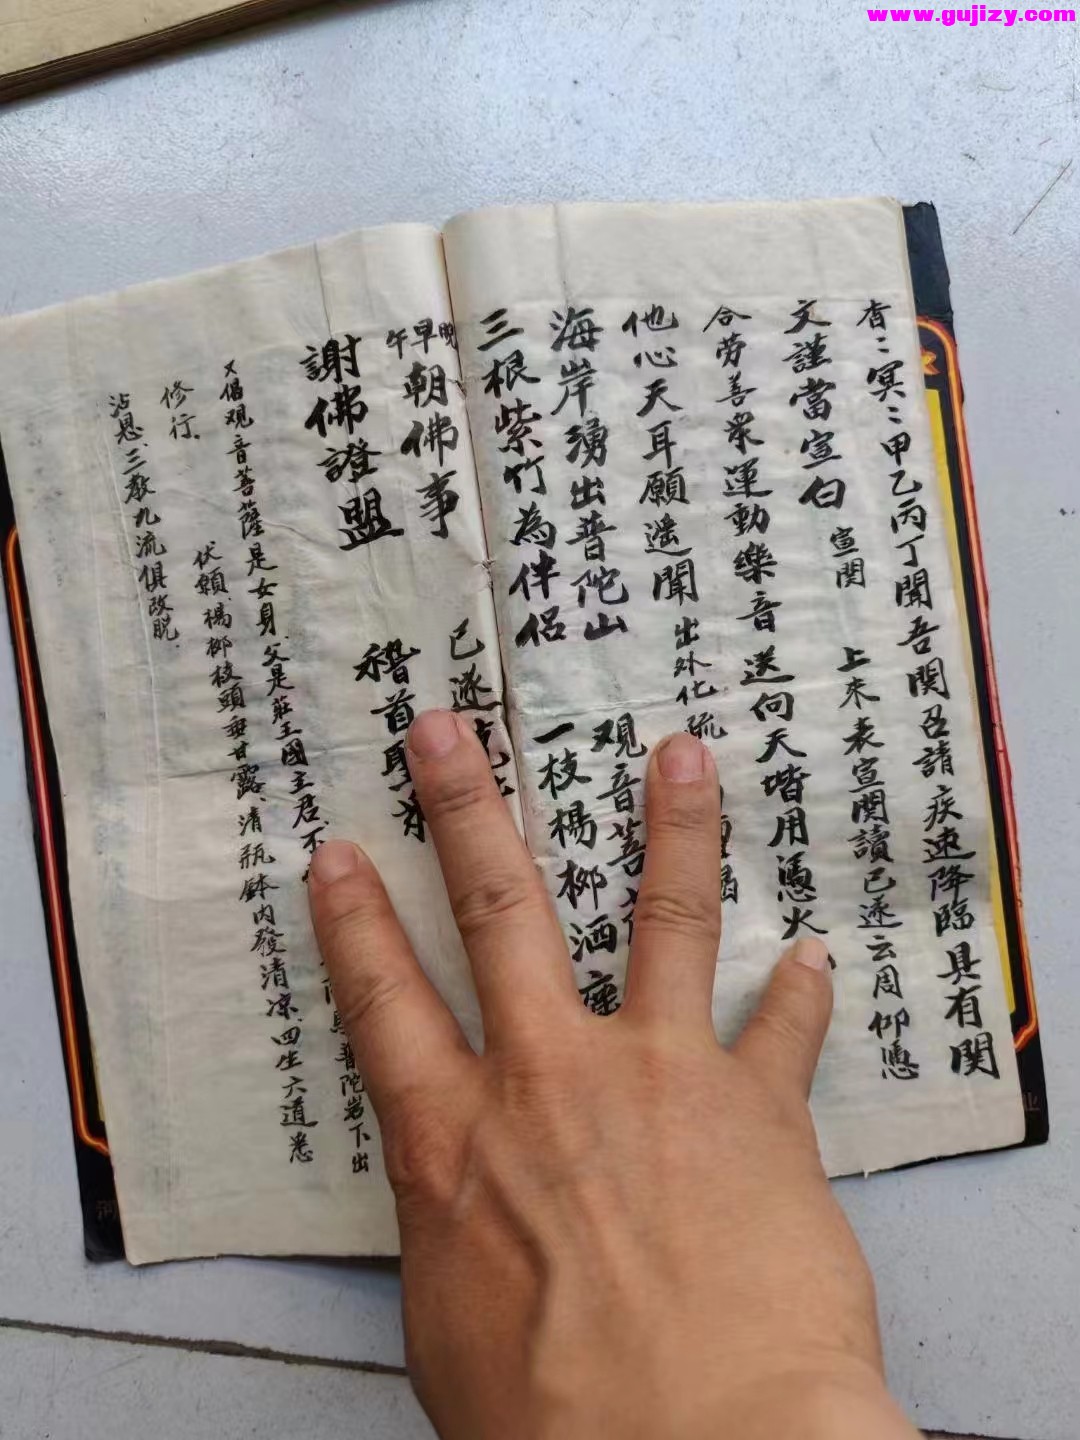 www.gujizy.com
杳〻冥〻甲乙丙丁聞吾関召請疾速降臨具有関
文謹當宣白 宣関 上来表宣関讀已遂云周仰憑
合劳善衆運動樂音送向天堦用憑火
他心天耳願遥聞 出外化疏
海岸湧出普陀山 观音菩
三根紫竹為伴侣 一枝楊柳洒
晚早午朝佛事 已遂
謝佛證盟 稽首聖
又倡观音菩薩是女身、父是莊王國主君、不 普陀岩下出
修行、 伏願、楊柳枝頭垂甘露、清瓶鉢内發清凉、四生六道悉
沾恩、三教九流俱改脱、